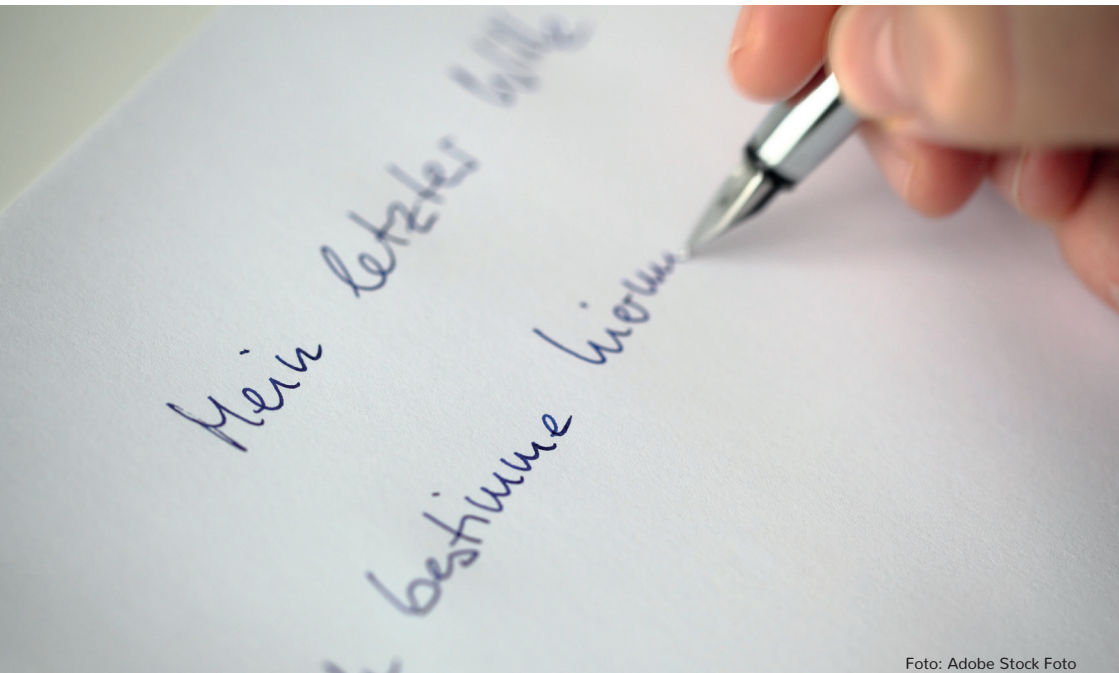 Mein letzter Wille
bestimme hierm
Foto: Adobe Stock Foto